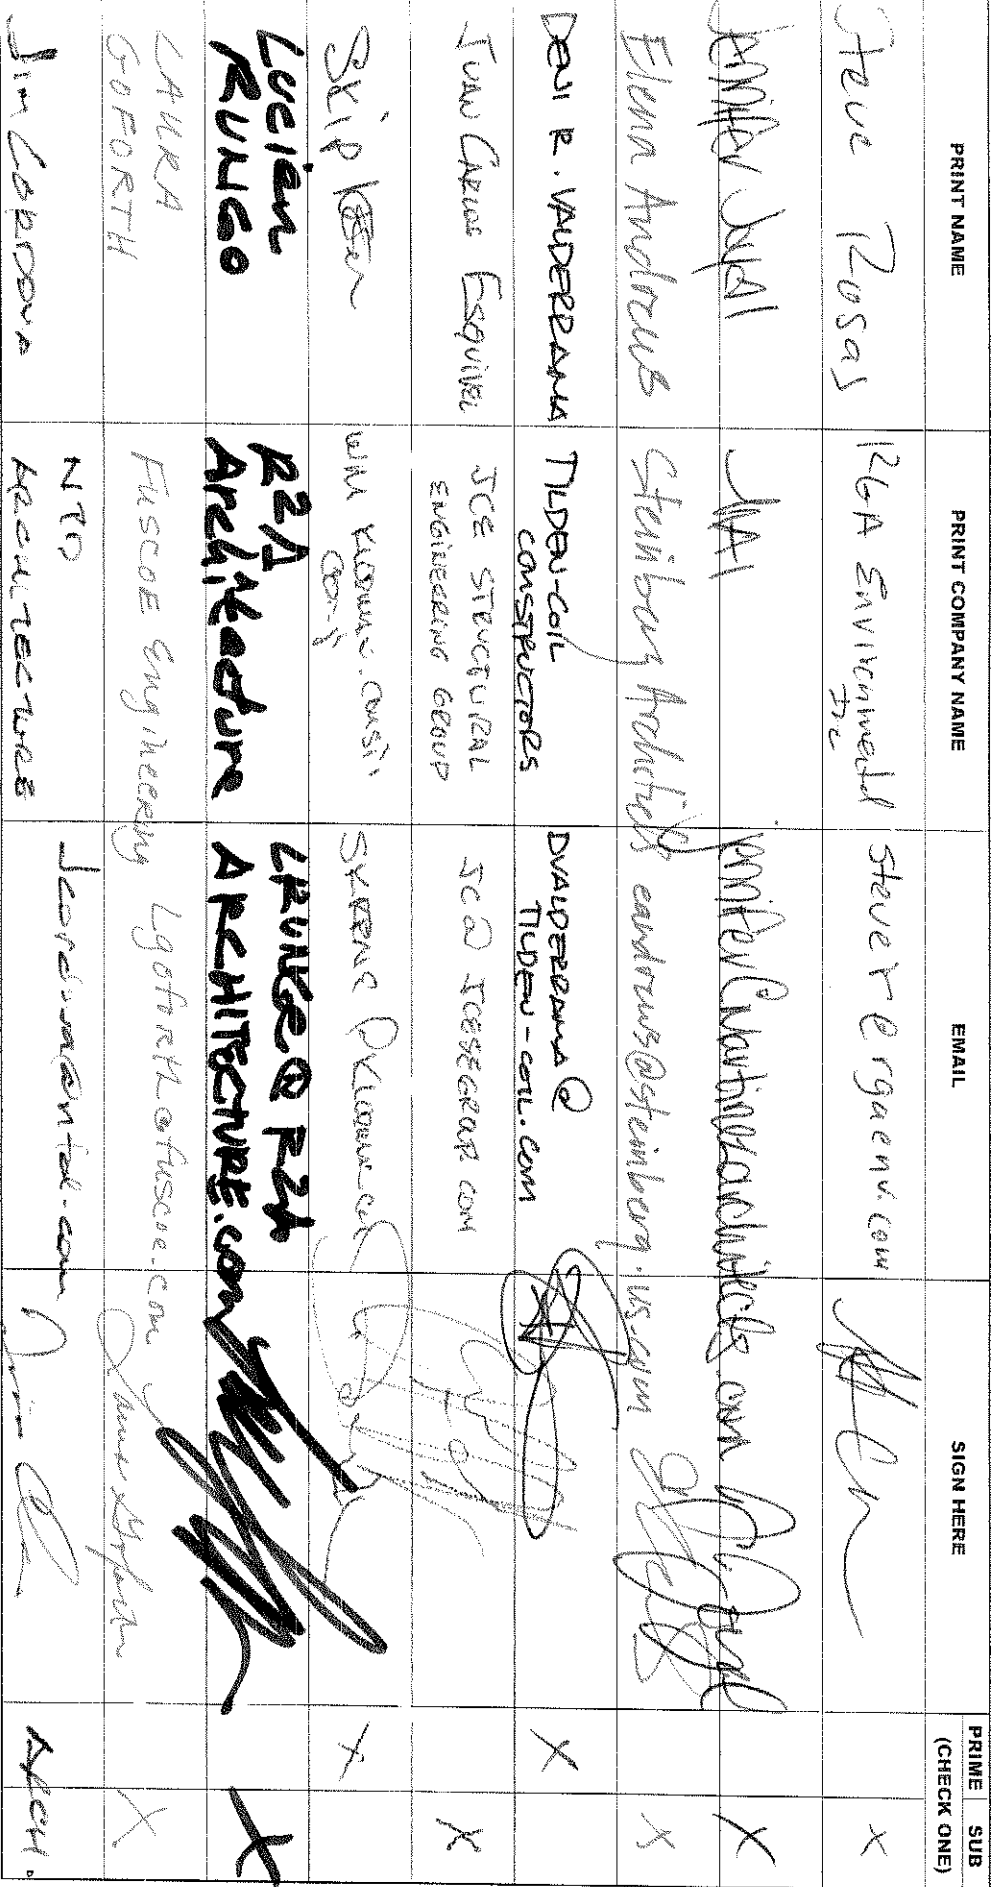 PRINT NAME PRINT COMPANY NAME EMAIL SIGN HERE PRIME SUB
(CHECK ONE)
Steve Rosas RGA Environmental Inc stever@rgaenv.com X
Jennifer X
Elena Andrews Steinberg Architects eandrews@steinberg.us.com X
DENI R. VALDERRAMA TILDEN-COIL
CONSTRUCTORS DVALDERRAMA@
TILDEN-COIL.COM X
JUAN CARLOS ESQUIVEL JCE STRUCTURAL
ENGINEERING GROUP JC@JCESEGROUP.COM X
Skip X
Lucian
RUNGO R2A
Architecture LRUNGO@R2A
ARCHITECTURE.com X
LAURA
GOFORTH FUSCOE Engineering Lgoforth@fuscoe.com Laura Goforth X
Jim CORDOVA NTD
ARCHITECTURE Jcordova@ntd.com ARCH.